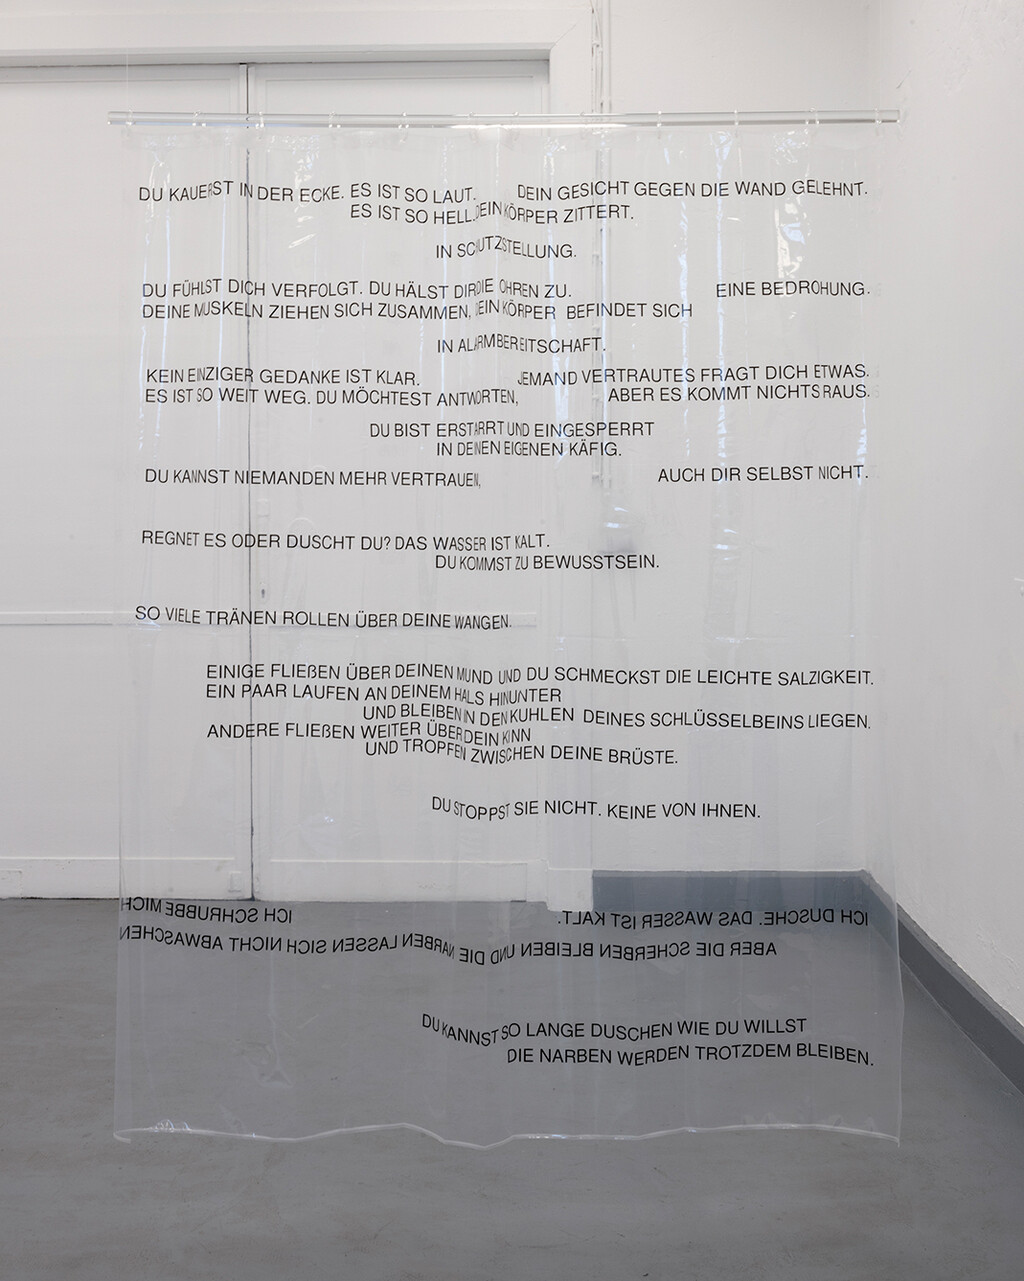 DU KAUERST IN DER ECKE. ES IST SO LAUT. DEIN GESICHT GEGEN DIE WAND GELEHNT.
ES IST SO HELL. DEIN KÖRPER ZITTERT.
IN SCHUTZSTELLUNG.
DU FÜHLST DICH VERFOLGT. DU HÄLST DIR DIE OHREN ZU. EINE BEDROHUNG.
DEINE MUSKELN ZIEHEN SICH ZUSAMMEN, DEIN KÖRPER BEFINDET SICH
IN ALARMBEREITSCHAFT.
KEIN EINZIGER GEDANKE IST KLAR. JEMAND VERTRAUTES FRAGT DICH ETWAS.
ES IST SO WEIT WEG. DU MÖCHTEST ANTWORTEN, ABER ES KOMMT NICHTS RAUS.
DU BIST ERSTARRT UND EINGESPERRT
IN DEINEN EIGENEN KÄFIG.
DU KANNST NIEMANDEN MEHR VERTRAUEN, AUCH DIR SELBST NICHT.
REGNET ES ODER DUSCHT DU? DAS WASSER IST KALT.
DU KOMMST ZU BEWUSSTSEIN.
SO VIELE TRÄNEN ROLLEN ÜBER DEINE WANGEN.
EINIGE FLIEßEN ÜBER DEINEN MUND UND DU SCHMECKST DIE LEICHTE SALZIGKEIT.
EIN PAAR LAUFEN AN DEINEM HALS HINUNTER
UND BLEIBEN IN DEN KUHLEN DEINES SCHLÜSSELBEINS LIEGEN.
ANDERE FLIEßEN WEITER ÜBER DEIN KINN
UND TROPFEN ZWISCHEN DEINE BRÜSTE.
DU STOPPST SIE NICHT. KEINE VON IHNEN.
ICH DUSCHE. DAS WASSER IST KALT. ICH SCHRUBBE MICH
ABER DIE SCHERBEN BLEIBEN UND DIE NARBEN LASSEN SICH NICHT ABWASCHEN
DU KANNST SO LANGE DUSCHEN WIE DU WILLST
DIE NARBEN WERDEN TROTZDEM BLEIBEN.